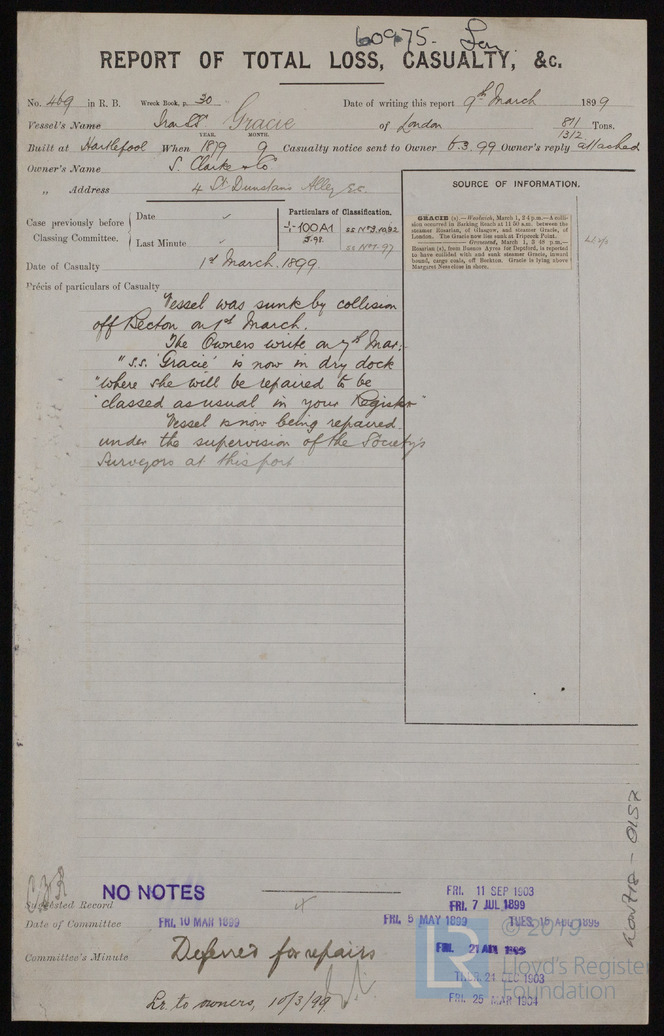 60975. Lon
REPORT OF TOTAL LOSS, CASUALTY, &c.
No. 469 in R. B. Wreck Book, p. 30 Date of writing this report 9th March 1899
Vessel's Name Iron SS Gracie of London 871 Tons.
1312
YEAR. MONTH.
Built at Hartlepool When 1879 9 Casualty notice sent to Owner 6.3.99 Owner's reply attached
Owner's Name S. Clarke & Co
„ Address 4 St Dunstans Alley E.C.
Case previously before Classing Committee.
Date
Last Minute
Particulars of Classification.
100A1 ss No3. 10/92
3.98. ss No1-97
Date of Casualty 1st March. 1899
Précis of particulars of Casualty
Vessel was sunk by collision
off Becton on 1st March.
The Owners write on 7th Mar:
"s.s. 'Gracie' is now in dry dock
"where she will be repaired to be
"classed as usual in your Register"
Vessel is now being repaired
under the supervision of the Society's
Surveyors at this port
SOURCE OF INFORMATION.
GRACIE (s).—Woolwich, March 1, 2 4 p.m.—A colli-
sion occurred in Barking Reach at 11 50 a.m. between the
steamer Rosarian, of Glasgow, and steamer Gracie, of
London. The Gracie now lies sunk at Tripcock Point.
Gravesend, March 1, 3 48 p.m.—
Rosarian (s), from Buenos Ayres for Deptford, is reported
to have collided with and sunk steamer Gracie, inward
bound, cargo coals, off Beckton. Gracie is lying above
Margaret Ness close in shore.
NO NOTES
Suggested Record
Date of Committee FRI. 10 MAR 1899 FRI. 5 MAY 1899
FRI. 11 SEP 1903
FRI. 7 JUL 1899
TUES. 15 AUG 1899
FRI. 21
THUR. 24 DEC 1903
FRI. 25 MAR 1904
Committee's Minute Deferred for repairs
Lr. to owners, 10/3/99
LON718-0157
© 2019
LR
Lloyd's Register
Foundation